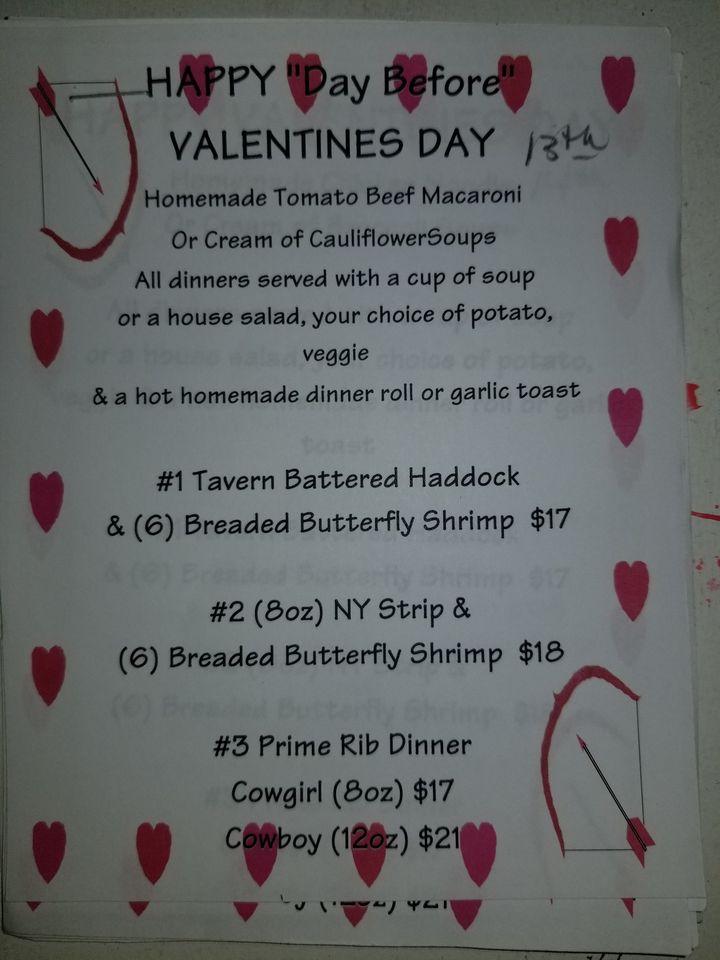 HAPPY "Day Before"
VALENTINES DAY 13th
Homemade Tomato Beef Macaroni
Or Cream of CauliflowerSoups
All dinners served with a cup of soup
or a house salad, your choice of potato,
veggie
& a hot homemade dinner roll or garlic toast
#1 Tavern Battered Haddock
& (6) Breaded Butterfly Shrimp $17
#2 (8oz) NY Strip &
(6) Breaded Butterfly Shrimp $18
#3 Prime Rib Dinner
Cowgirl (8oz) $17
Cowboy (12oz) $21